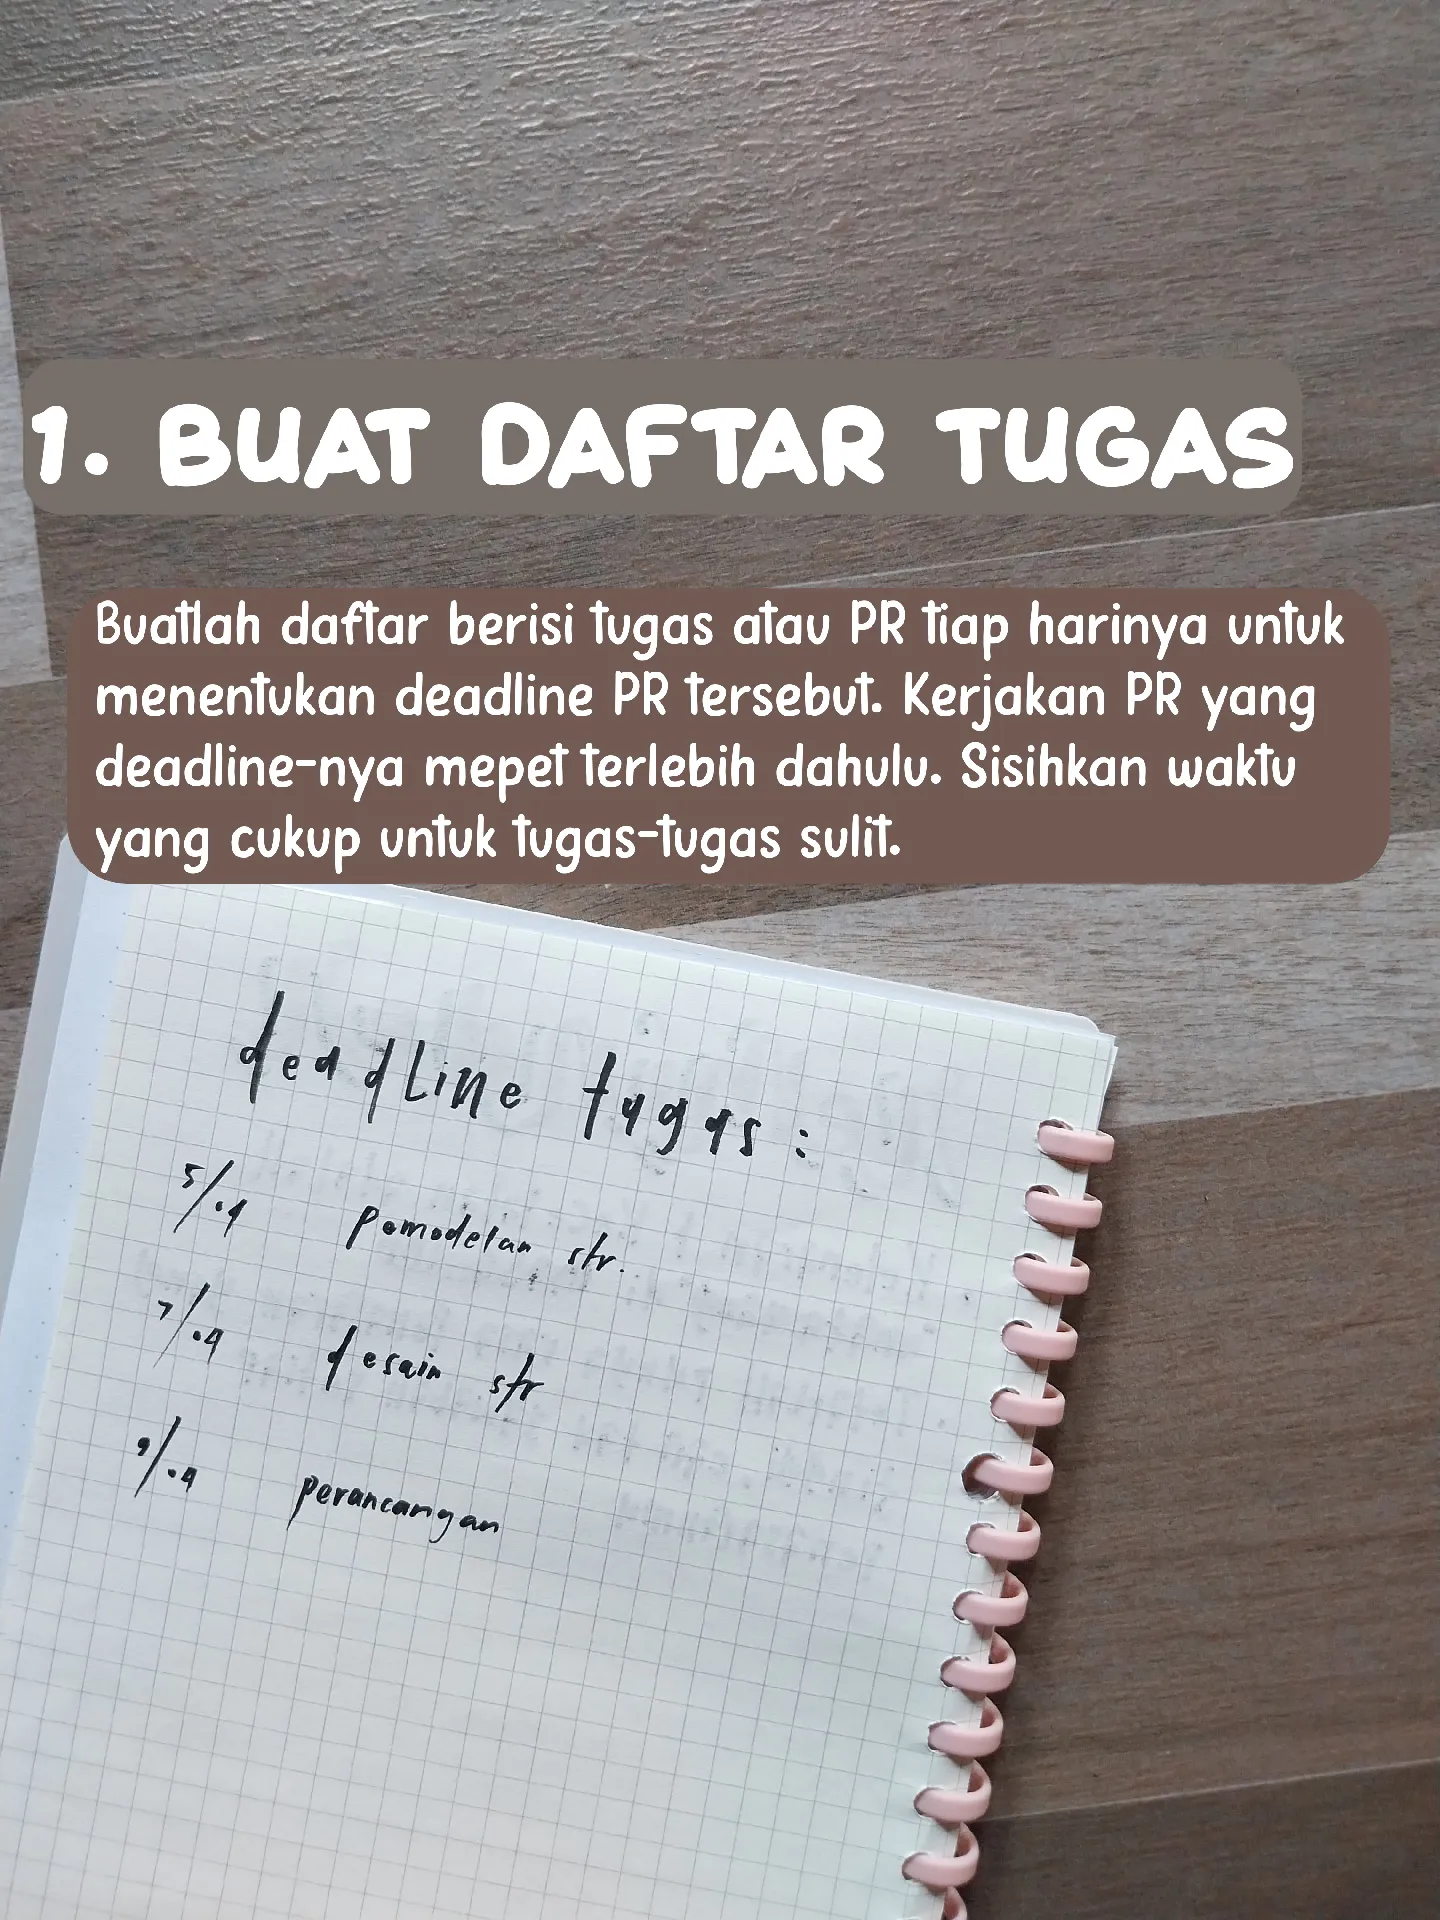 1. BUAT DAFTAR TUGAS
Buatlah daftar berisi tugas atau PR tiap harinya untuk
menentukan deadline PR tersebut. Kerjakan PR yang
deadline-nya mepet terlebih dahulu. Sisihkan waktu
yang cukup untuk tugas-tugas sulit.
deadline tugas:
5/.4 pemodelan str.
7/.4 desain str
9/.4 perancangan